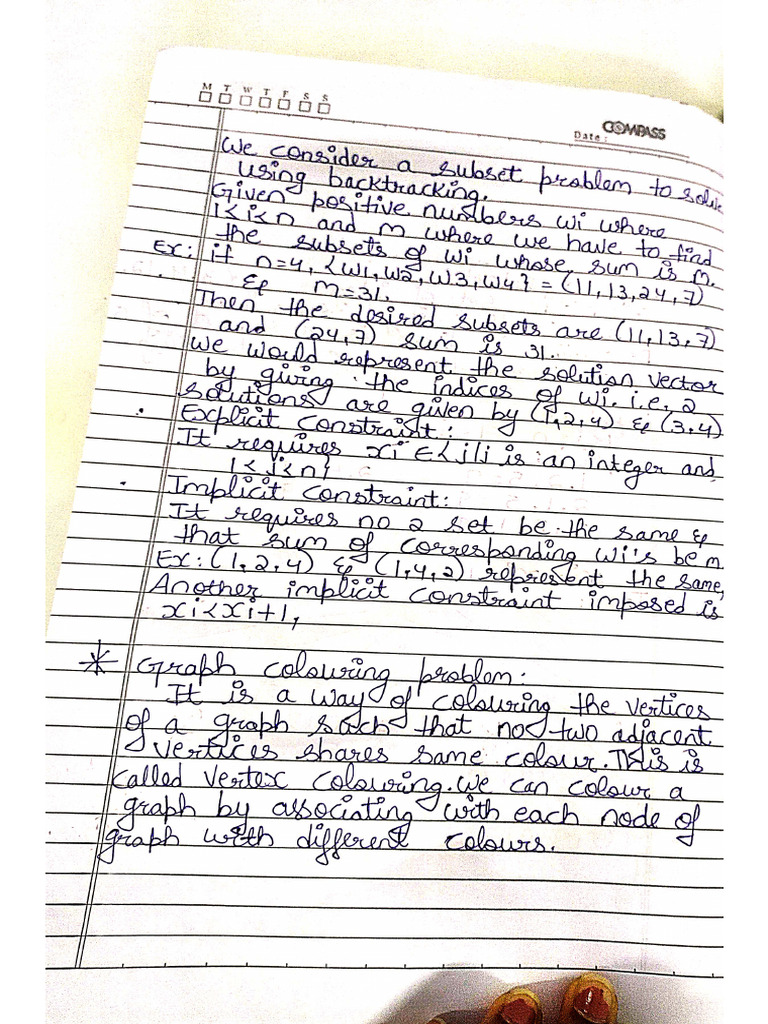 M T W T F S S
COMPASS
Date:
We consider a subset problem to solve
using backtracking.
Given positive numbers wi where
1<i<n and m where we have to find
the subsets of wi whose sum is m.
Ex: if n=4, {w1, w2, w3, w4} = (11,13,24,7)
& m=31.
Then the desired subsets are (11,13,7)
and (24,7) sum is 31.
We would represent the solution vector
by giving the indices of wi. i.e, 2
solutions are given by (1,2,4) & (3,4)
• Explicit Constraint:
It requires xi ∈ {j|j is an integer and
1<j<n}
• Implicit Constraint:
It requires no 2 set be the same &
that sum of corresponding wi's be m
Ex: (1,2,4) & (1,4,2) represent the same,
Another implicit constraint imposed is
xi<xi+1,
* Graph colouring problem:
It is a way of colouring the vertices
of a graph such that no two adjacent
vertices shares same colour. This is
called vertex colouring. We can colour a
graph by associating with each node of
graph with different colours.